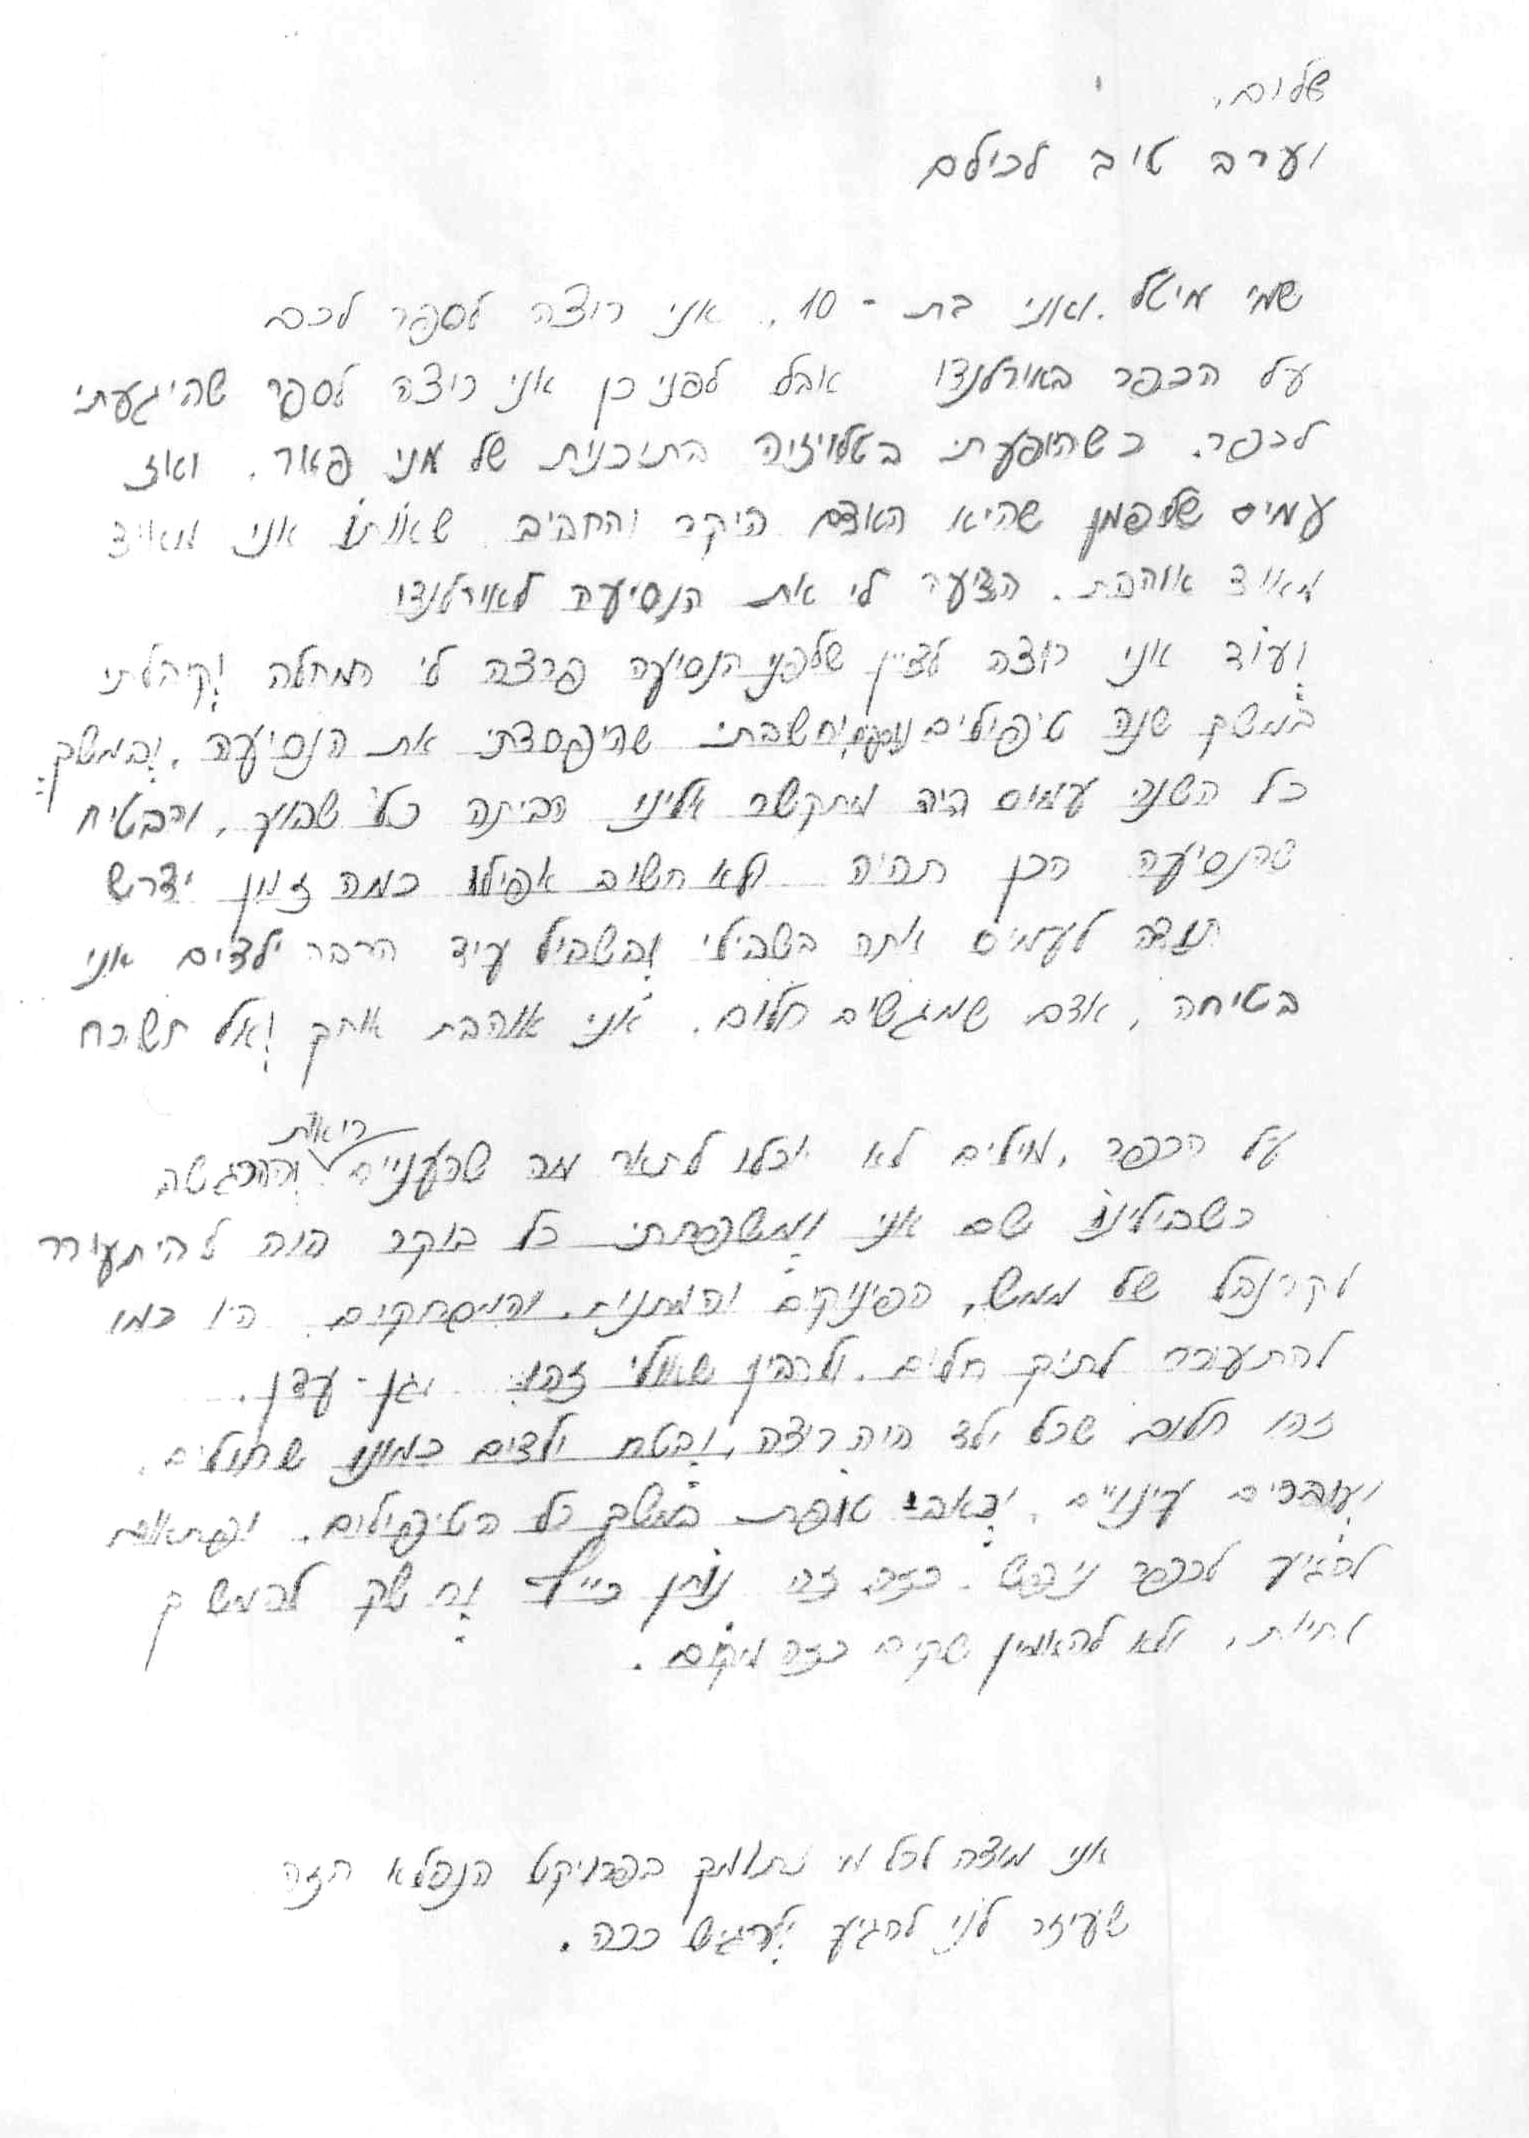 שלום,
וערב טוב לכולם
שמי מיטל ואני בת - 10, אני רוצה לספר לכם
על הכפר באורלנדו אבל לפני כן אני רוצה לספר שהיגעתי
לכפר. כשהופעתי בטלויזיה בתוכנית של מני פאר. ואז
עמוס שליפמן שהוא האדם היקר והחביב שאותו אני מאוד
מאוד אוהבת. הציע לי את הנסיעה לאורלנדו
ועוד אני רוצה לציין שלפני הנסיעה פרצה לי המחלה וקיבלתי
במשך שנה טיפולים וחשבתי שהיפסדתי את הנסיעה, ובמשך
כל השנה עמוס היה מתקשר אלינו הביתה כל שבוע, והבטיח
שהנסיעה הכן תהיה ולא חשוב אפילו כמה זמן ידרש
תודה לעמוס אתה בשבילי ובשביל עוד הרבה ילדים אני
בטוחה, אדם שמגשים חלום. אני אוהבת אותך ואל תשכח
על הכפר, מילים לא יוכלו לתאר מה שהעניים רואות וההרגשה
כשבילינו שם אני ומשפחתי כל בוקר היה להיתעורר
לקרנבל של ממש, הפינוקים והמתנות, והמשחקים היו כמו
להתעורר לתוך חלום. ולהבין שאולי זהו גן - עדן.
זהו חלום שכל ילד היה רוצה, ובטח ילדים כמונו שחולים,
ועוברים עינויים, וכאבי תופת במשך כל הטיפולים. ופתאום
להגיע לכפר נופש כזה זה נותן כייף וחשק להמשך
לחיות, ולא להאמין שקים כזה מקום.
אני מודה לכל מי בפרויקט הנפלא הזה
שעזר לנו להגיע ולהגיש ככה.